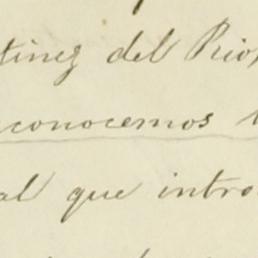 tinez del Rio,
conocemos
al que intro